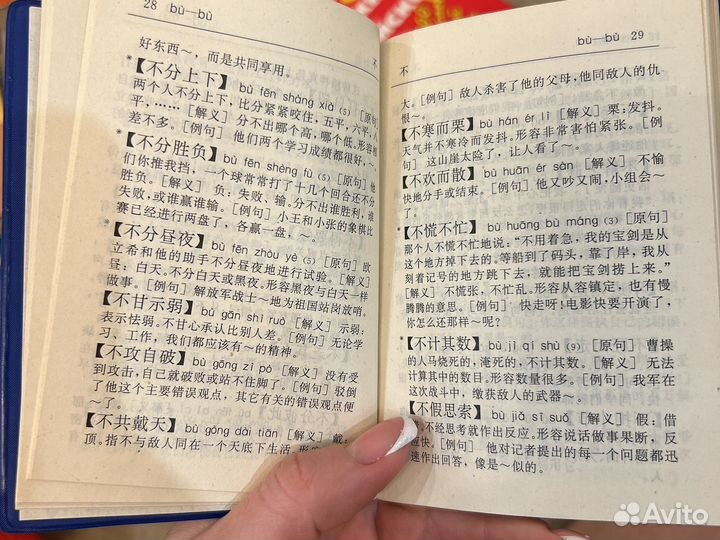 28 bù—bù
好东西～，而是共同享用。
*【不分上下】bù fēn shàng xià (5)［原句］
两个人不分上下，比分紧紧咬住，五平，六平，
平，……［解义］分不出哪个高，哪个低。形容
差不多。［例句］他们两个学习成绩都很好，～
*【不分胜负】bù fēn shèng fù (5)［原句］他
们你推我挡，一个球常常打了十几个回合还不分
胜负。［解义］负：失败、输。分不出谁胜利，谁
失败，或谁赢谁输。［例句］小王和小张的象棋比
赛已经进行两盘了，各赢一盘，～。
*【不分昼夜】bù fēn zhòu yè (6)［原句］欧
立希和他的助手不分昼夜地进行试验。［解义］
昼：白天。不分白天或黑夜。形容黑夜与白天一样
做事。［例句］解放军战士～地为祖国站岗放哨。
【不甘示弱】bù gān shì ruò［解义］示弱：
表示怯弱。不甘心承认比别人差。［例句］无论学
习、工作，我们都应该有～的精神。
【不攻自破】bù gōng zì pò［解义］没有受
到攻击，自己就破败或站不住脚了。［例句］驳倒
了他这个主要错误观点，其它有关的错误观点便
～了。
【不共戴天】bù gòng dài tiān［解义］戴：
顶。指不与敌人同在一个天底下生活。形
不
bù—bù 29
大。［例句］敌人杀害了他的父母，他同敌人的仇
恨～。
*【不寒而栗】bù hán ér lì［解义］栗：发抖。
天气并不寒冷而发抖。形容非常害怕紧张。［例
句］这山崖太险了，让人看了～。
【不欢而散】bù huān ér sàn［解义］不愉
快地分手或结束。［例句］他又吵又闹，小组会～
*【不慌不忙】bù huāng bù máng (3)［原句］
那个人不慌不忙地说：“不用着急，我的宝剑是从
这个地方掉下去的。等船到了码头，靠了岸，我从
刻着记号的地方跳下去，就能把宝剑捞上来。”
［解义］不慌张，不忙乱。形容从容镇定，也有慢
腾腾的意思。［例句］快走呀！电影快要开演了，
你怎么还那样～呢？
*【不计其数】bù jì qí shù (9)［原句］曹操
的人马烧死的，淹死的，不计其数。［解义］无法
计算其中的数目。形容数量很多。［例句］我军在
这次战斗中，缴获敌人的武器～。
【不假思索】bù jiǎ sī suǒ［解义］假：借
不经思考就作出反应。形容说话做事果断，反
应快。［例句］他对记者提出的每一个问题都迅
速作出回答，像是～似的。
Avito